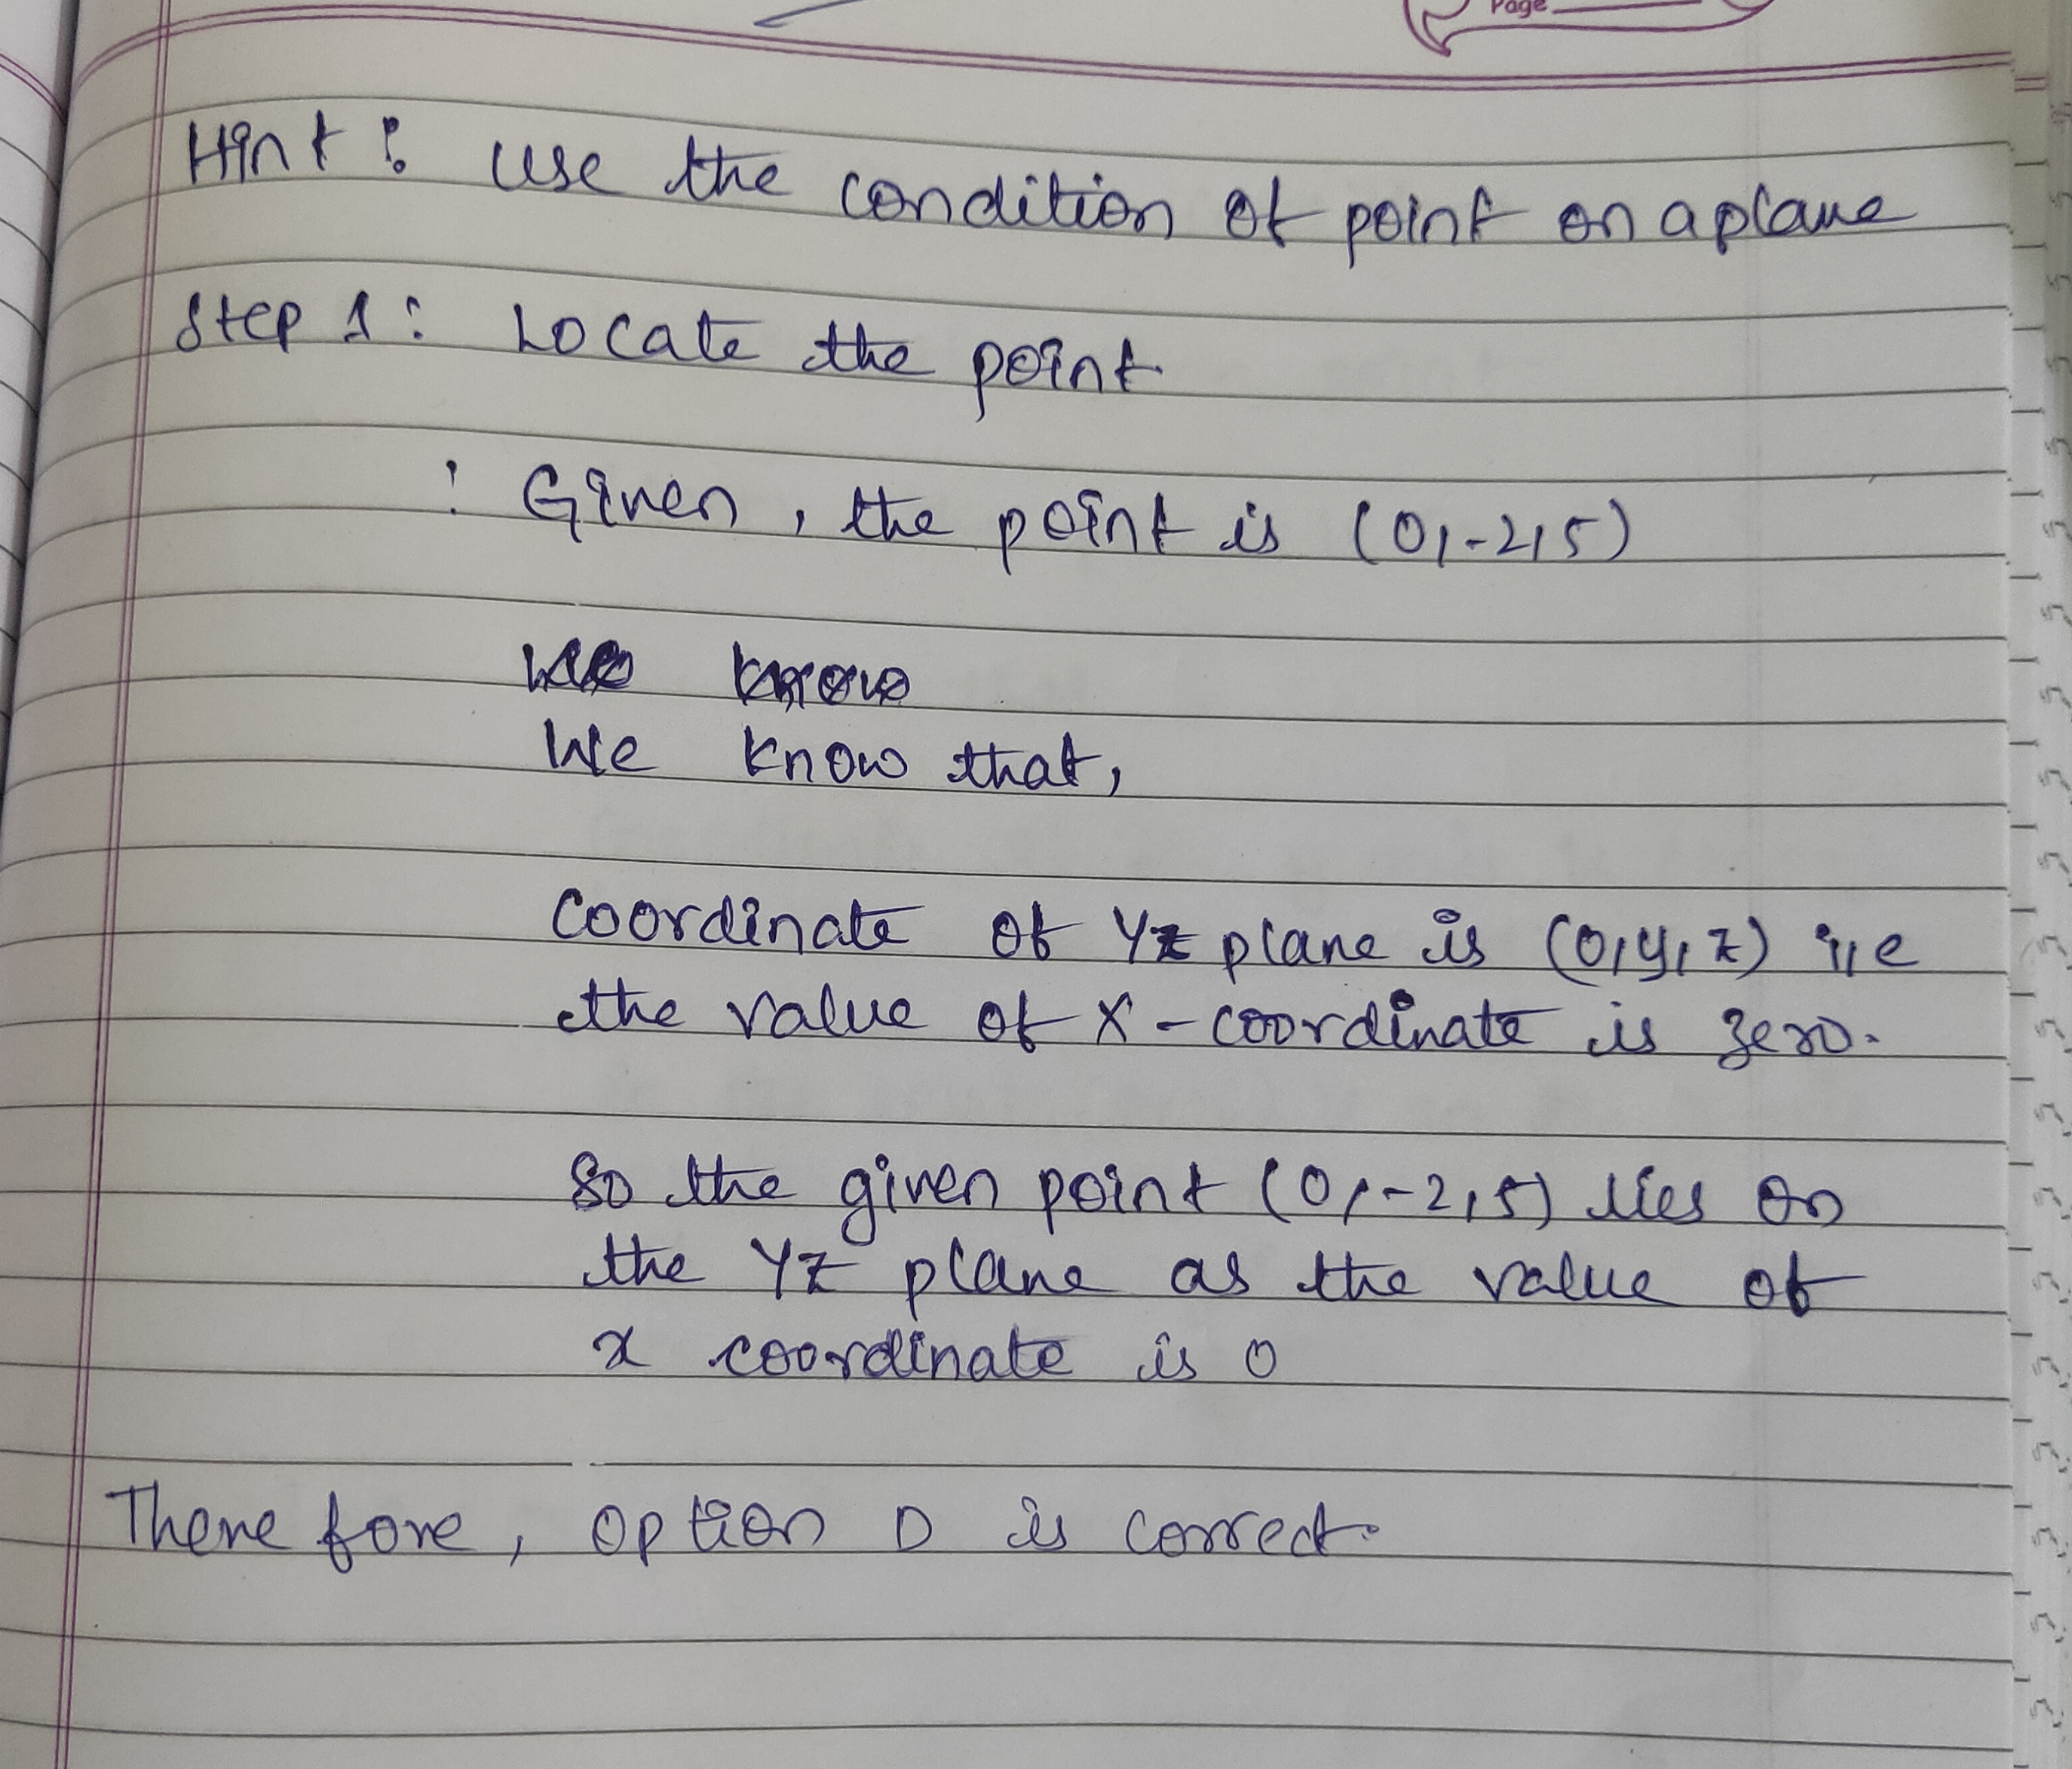 Page
Hint : Use the condition of point on a plane
Step 1 : Locate the point
: Given, the point is (0,-2,5)
We know
We know that,
Coordinate of YZ plane is (0,y,z) i.e
the value of X-coordinate is zero.
So the given point (0,-2,5) lies on
the YZ plane as the value of
x coordinate is 0
Therefore, option D is correct.